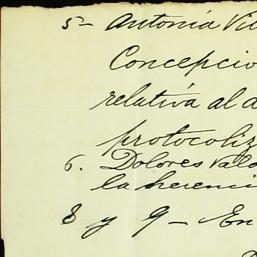 5- Antonia Vil
Concepcio
relativa al a
protocoliz
6. Dolores Vald
la herenci
8 y 9- En